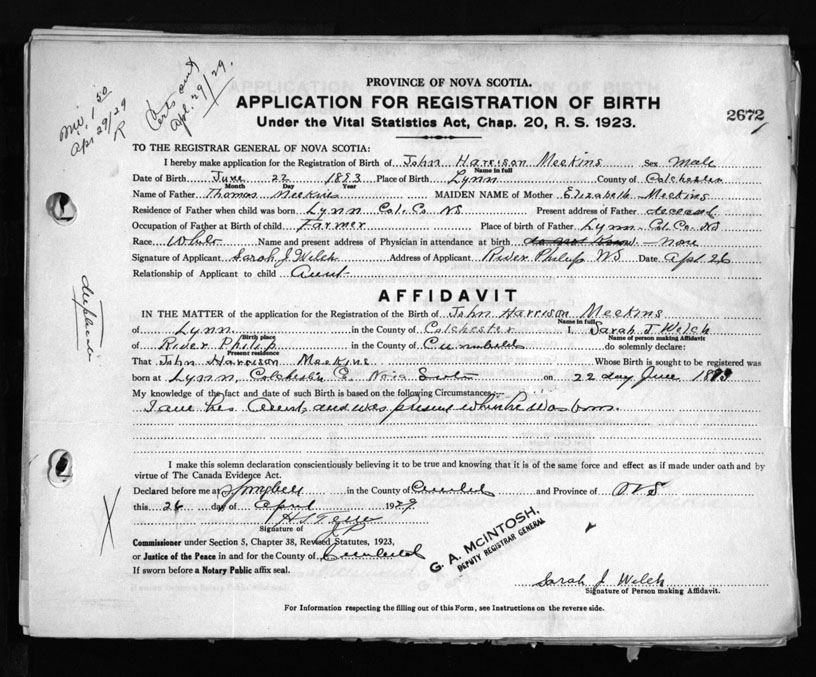 Mis. 1 50
Apr 29/29
R
Certs out
Apl. 29/29.
PROVINCE OF NOVA SCOTIA.
APPLICATION FOR REGISTRATION OF BIRTH
Under the Vital Statistics Act, Chap. 20, R. S. 1923.
2672
TO THE REGISTRAR GENERAL OF NOVA SCOTIA:
I hereby make application for the Registration of Birth of John Harrison Meekins Sex Male
Name in full
Date of Birth June 22 1893 Place of Birth Lynn County of Colchester
Month Day Year
Name of Father Thomas Meekins MAIDEN NAME of Mother Elizabeth Meekins
Residence of Father when child was born Lynn Col. Co. NS Present address of Father deceased
Occupation of Father at Birth of child Farmer Place of birth of Father Lynn Col. Co. NS
Race White Name and present address of Physician in attendance at birth do not Know - None
Signature of Applicant Sarah J Welch Address of Applicant River Philip NS Date Apl 26
Relationship of Applicant to child Aunt
AFFIDAVIT
duplicate
IN THE MATTER of the application for the Registration of the Birth of John Harrison Meekins
Name in full
of Lynn in the County of Colchester I, Sarah J Welch
Birth place Name of person making Affidavit
of River Philip in the County of Cumberland do solemnly declare:
Present residence
That John Harrison Meekins Whose Birth is sought to be registered was
born at Lynn Colchester Co. Nova Scotia on 22 day June 1893
My knowledge of the fact and date of such Birth is based on the following Circumstances:
I am his Aunt and was present when he was born.
I make this solemn declaration conscientiously believing it to be true and knowing that it is of the same force and effect as if made under oath and by
virtue of The Canada Evidence Act.
Declared before me at in the County of Cumberland and Province of N S
this 26 day of April 1929
Signature of JP
Commissioner under Section 5, Chapter 38, Revised Statutes, 1923,
or Justice of the Peace in and for the County of Cumberland
If sworn before a Notary Public affix seal.
G. A. McINTOSH.
DEPUTY REGISTRAR GENERAL
Sarah J. Welch
Signature of Person making Affidavit.
For Information respecting the filling out of this Form, see Instructions on the reverse side.